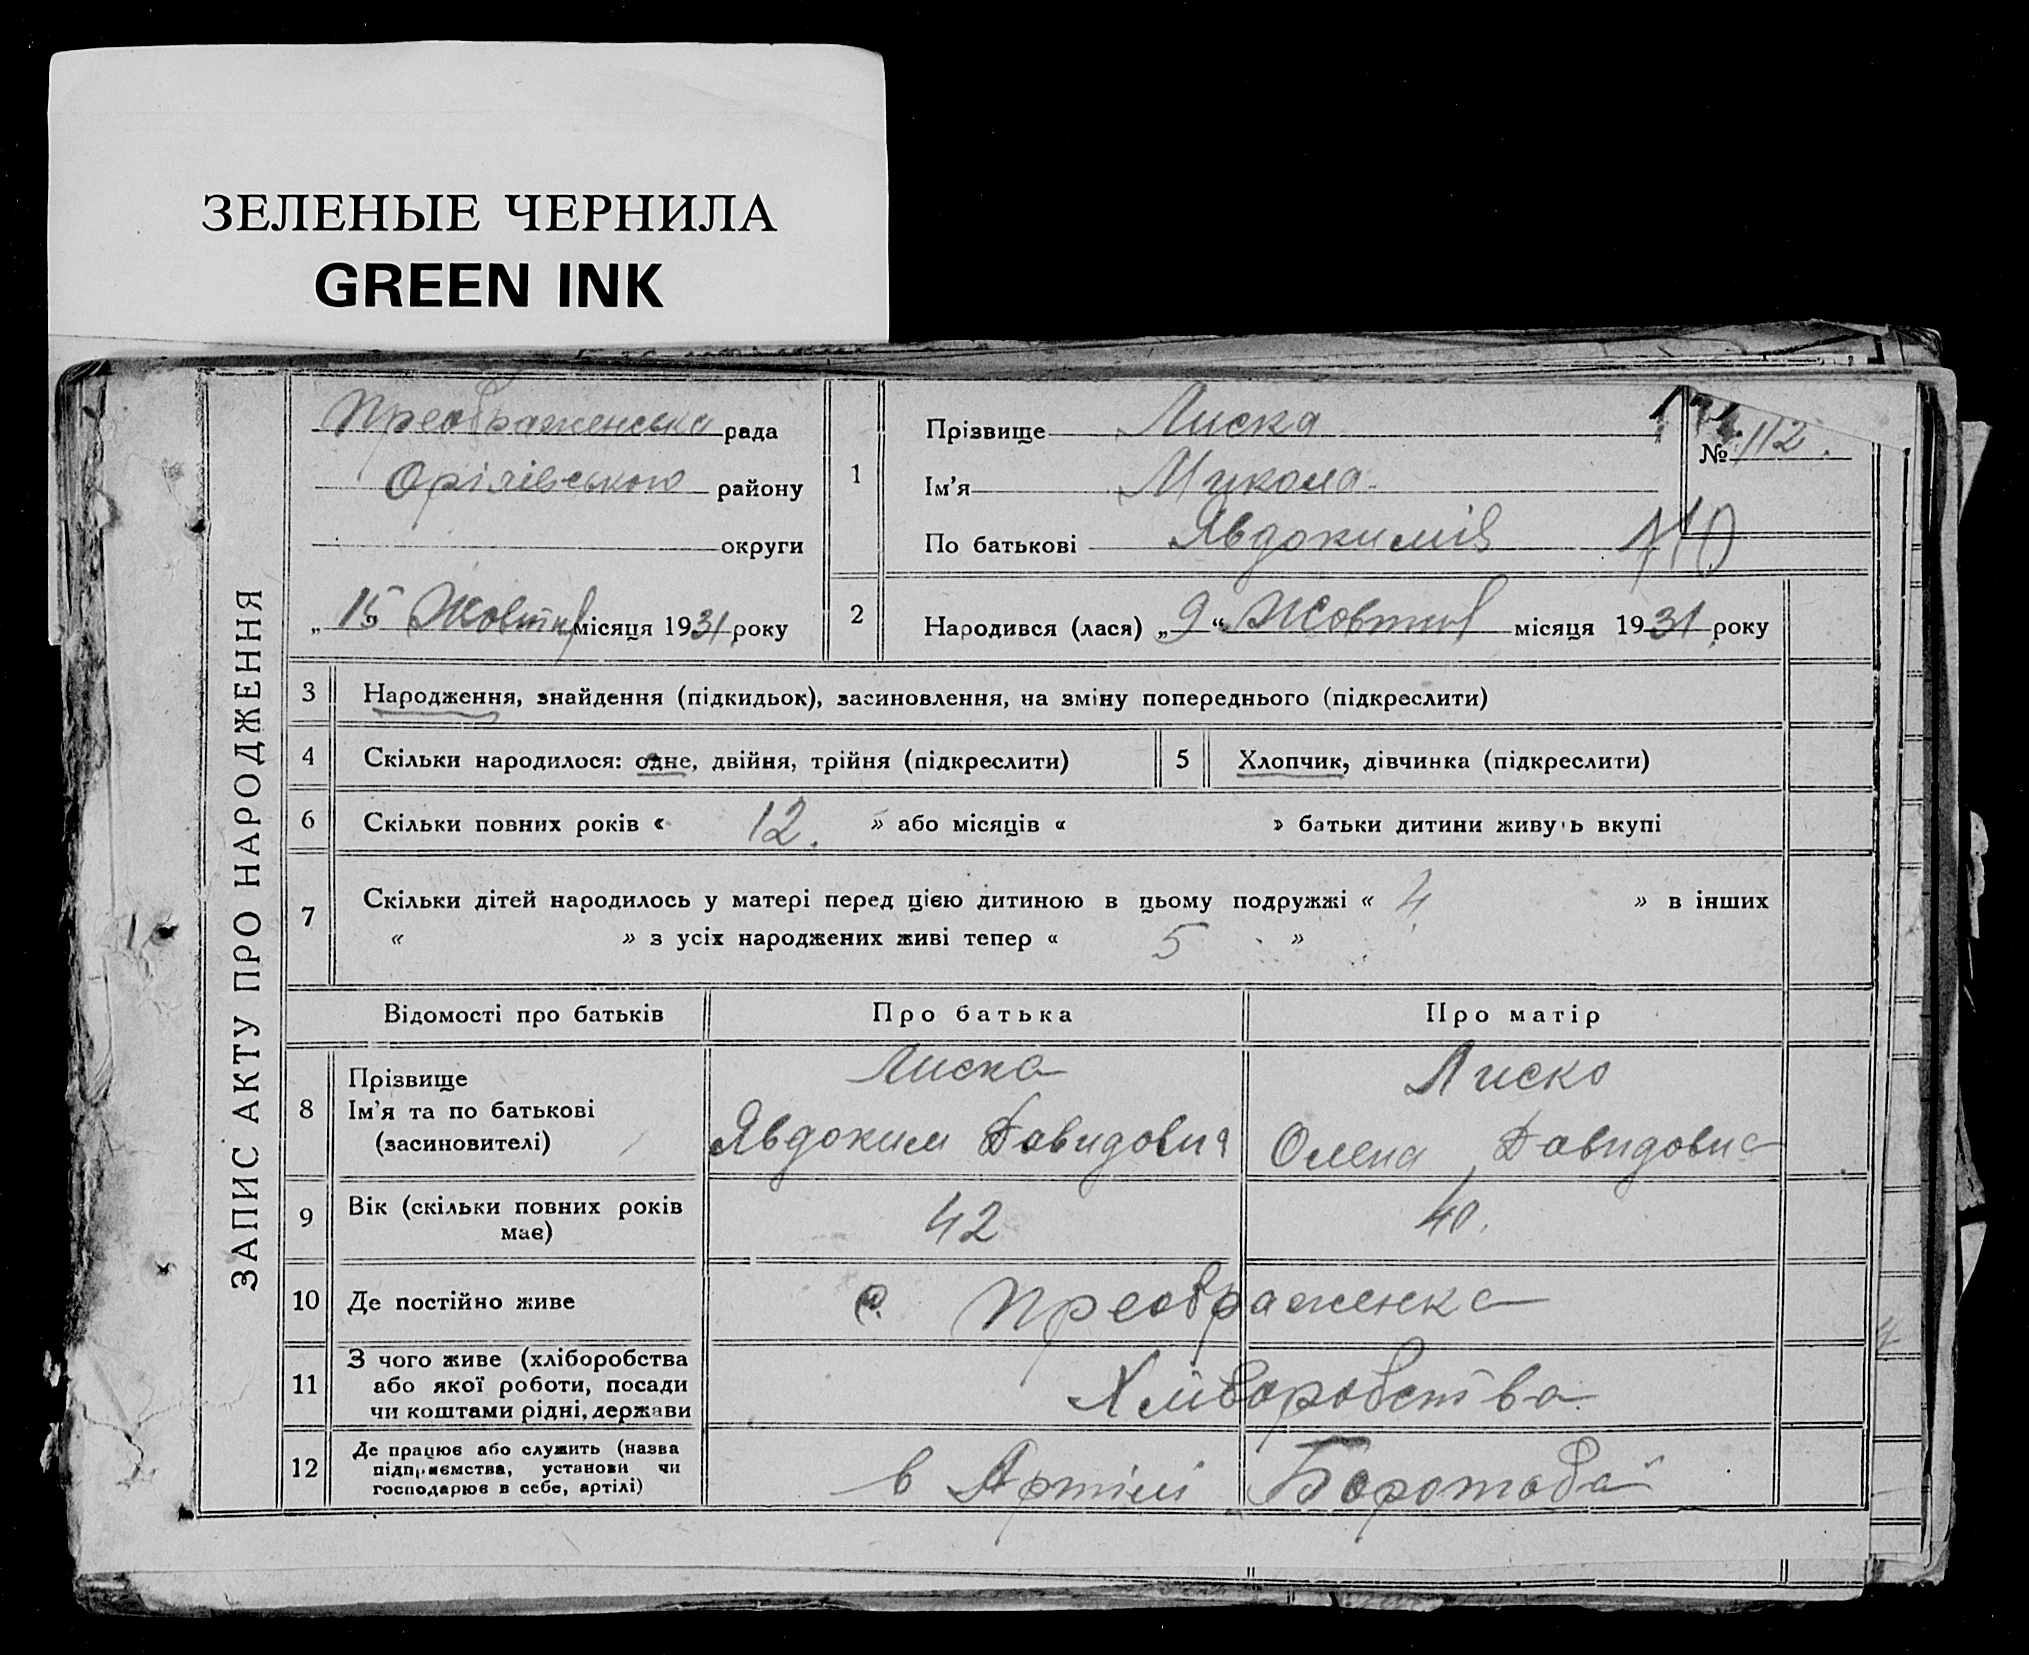 ЗЕЛЕНЫЕ ЧЕРНИЛА
GREEN INK
ЗАПИС АКТУ ПРО НАРОДЖЕННЯ
Преображенська рада
Орілівського району
округи
„ 15 " Жовтня місяця 1931 року
1
Прізвище Лиска
Ім'я Микола
По батькові Явдокимів
№ 112.
2 Народився (лася) „ 9 “ Жовтня місяця 1931 року
3 Народження, знайдення (підкидьок), засиновлення, на зміну попереднього (підкреслити)
4 Скільки народилося: одне, двійня, трійня (підкреслити) 5 Хлопчик, дівчинка (підкреслити)
6 Скільки повних років « 12. » або місяців « » батьки дитини живуть вкупі
7 Скільки дітей народилось у матері перед цією дитиною в цьому подружжі « 4 » в інших
« » з усіх народжених живі тепер « 5 »
Відомості про батьків Про батька Про матір
8 Прізвище Лиска Лиско
Ім'я та по батькові
(засиновителі) Явдоким Давидович Олена Давидовна
9 Вік (скільки повних років
має) 42 40.
10 Де постійно живе с. Преображенка
11 З чого живе (хліборобства
або якої роботи, посади
чи коштами рідні, держави Хліборобства
12 Де працює або служить (назва
підприємства, установи чи
господарює в себе, артілі) в Артілі Боротьба